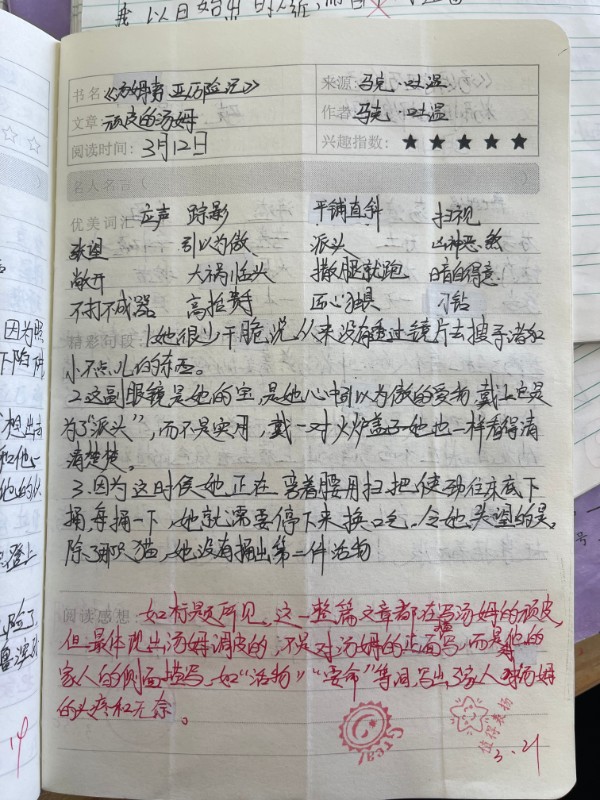 我以
书名《汤姆索亚历险记》
来源:马克·吐温
文章:顽皮的汤姆
作者:马克·吐温
阅读时间:3月12日
兴趣指数:★★★★★
名人名言(
优美词汇 应声 踪影 平铺直斜 扫视
欲望 引以为傲 派头 凶神恶煞
敞开 大祸临头 撒腿就跑 暗自得意
不打不成器 高抬贵手 匠心独具 刁钻
精彩句段 1她很少干脆说从来没有透过镜片去搜寻诸如
小不点儿的东西。
2.这副眼镜是她的宝,是她心中引以为傲的爱物,戴上它是
为了"派头",而不是实用,戴一对火炉盖子她也一样看得清
清楚楚。
3.因为这时侯她正在弯着腰用扫把使劲往床底下
捅,每捅一下,她就需要停下来换口气。令她失望的是
除了那只猫,她没有捅出第二件活物
阅读感想:如标题所见,这一整篇文章都在写汤姆的顽皮
但最体现出汤姆调皮的,不是对汤姆的正面写,而是他的
家人的侧面描写,如"活物""要命"等词,写出了家人对汤姆
的头疼和无奈。
Great
值得表扬
3.21
因为照
下陷阱